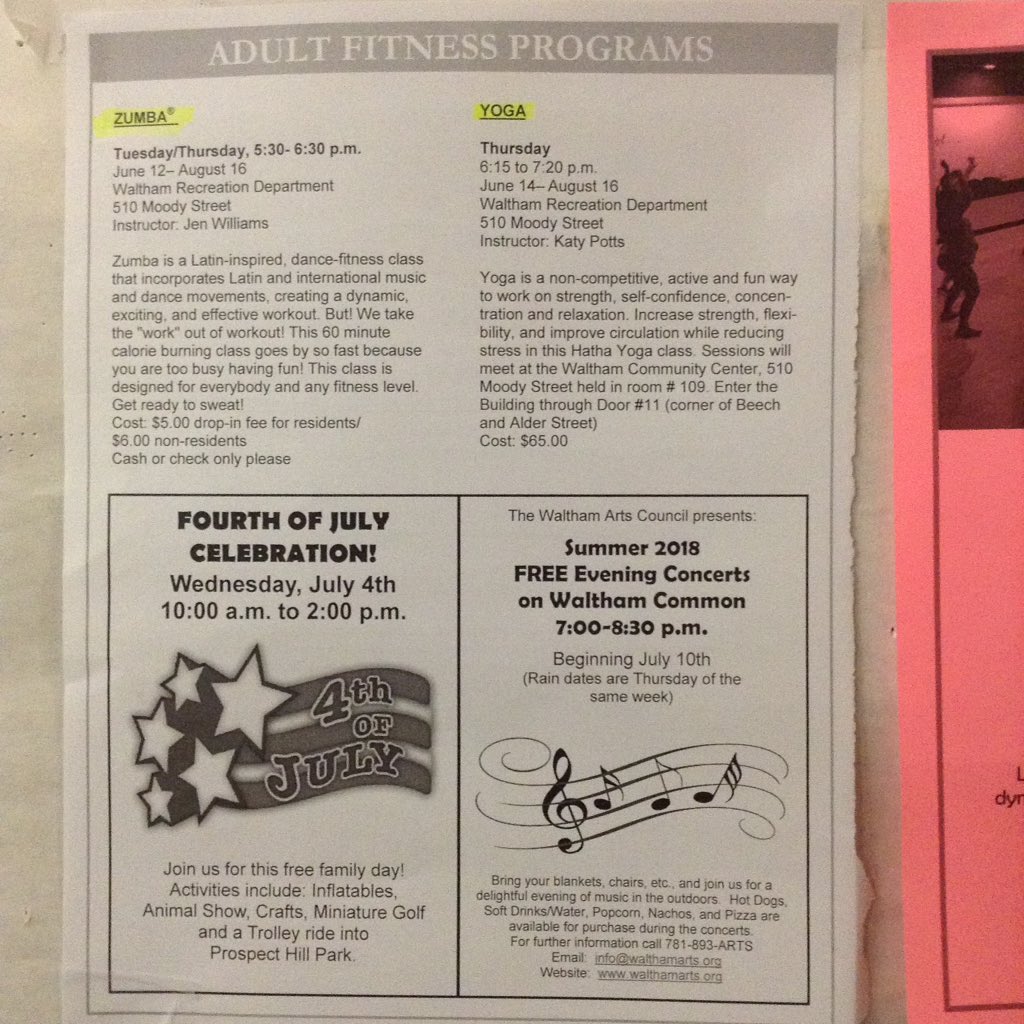 ADULT FITNESS PROGRAMS
ZUMBA®
Tuesday/Thursday, 5:30- 6:30 p.m.
June 12– August 16
Waltham Recreation Department
510 Moody Street
Instructor: Jen Williams
Zumba is a Latin-inspired, dance-fitness class
that incorporates Latin and international music
and dance movements, creating a dynamic,
exciting, and effective workout. But! We take
the "work" out of workout! This 60 minute
calorie burning class goes by so fast because
you are too busy having fun! This class is
designed for everybody and any fitness level.
Get ready to sweat!
Cost: $5.00 drop-in fee for residents/
$6.00 non-residents
Cash or check only please
YOGA
Thursday
6:15 to 7:20 p.m.
June 14– August 16
Waltham Recreation Department
510 Moody Street
Instructor: Katy Potts
Yoga is a non-competitive, active and fun way
to work on strength, self-confidence, concen-
tration and relaxation. Increase strength, flexi-
bility, and improve circulation while reducing
stress in this Hatha Yoga class. Sessions will
meet at the Waltham Community Center, 510
Moody Street held in room # 109. Enter the
Building through Door #11 (corner of Beech
and Alder Street)
Cost: $65.00
FOURTH OF JULY
CELEBRATION!
Wednesday, July 4th
10:00 a.m. to 2:00 p.m.
4th
OF
JULY
Join us for this free family day!
Activities include: Inflatables,
Animal Show, Crafts, Miniature Golf
and a Trolley ride into
Prospect Hill Park.
The Waltham Arts Council presents:
Summer 2018
FREE Evening Concerts
on Waltham Common
7:00-8:30 p.m.
Beginning July 10th
(Rain dates are Thursday of the
same week)
Bring your blankets, chairs, etc., and join us for a
delightful evening of music in the outdoors. Hot Dogs,
Soft Drinks/Water, Popcorn, Nachos, and Pizza are
available for purchase during the concerts.
For further information call 781-893-ARTS
Email: info@walthamarts.org
Website: www.walthamarts.org
L
dyn